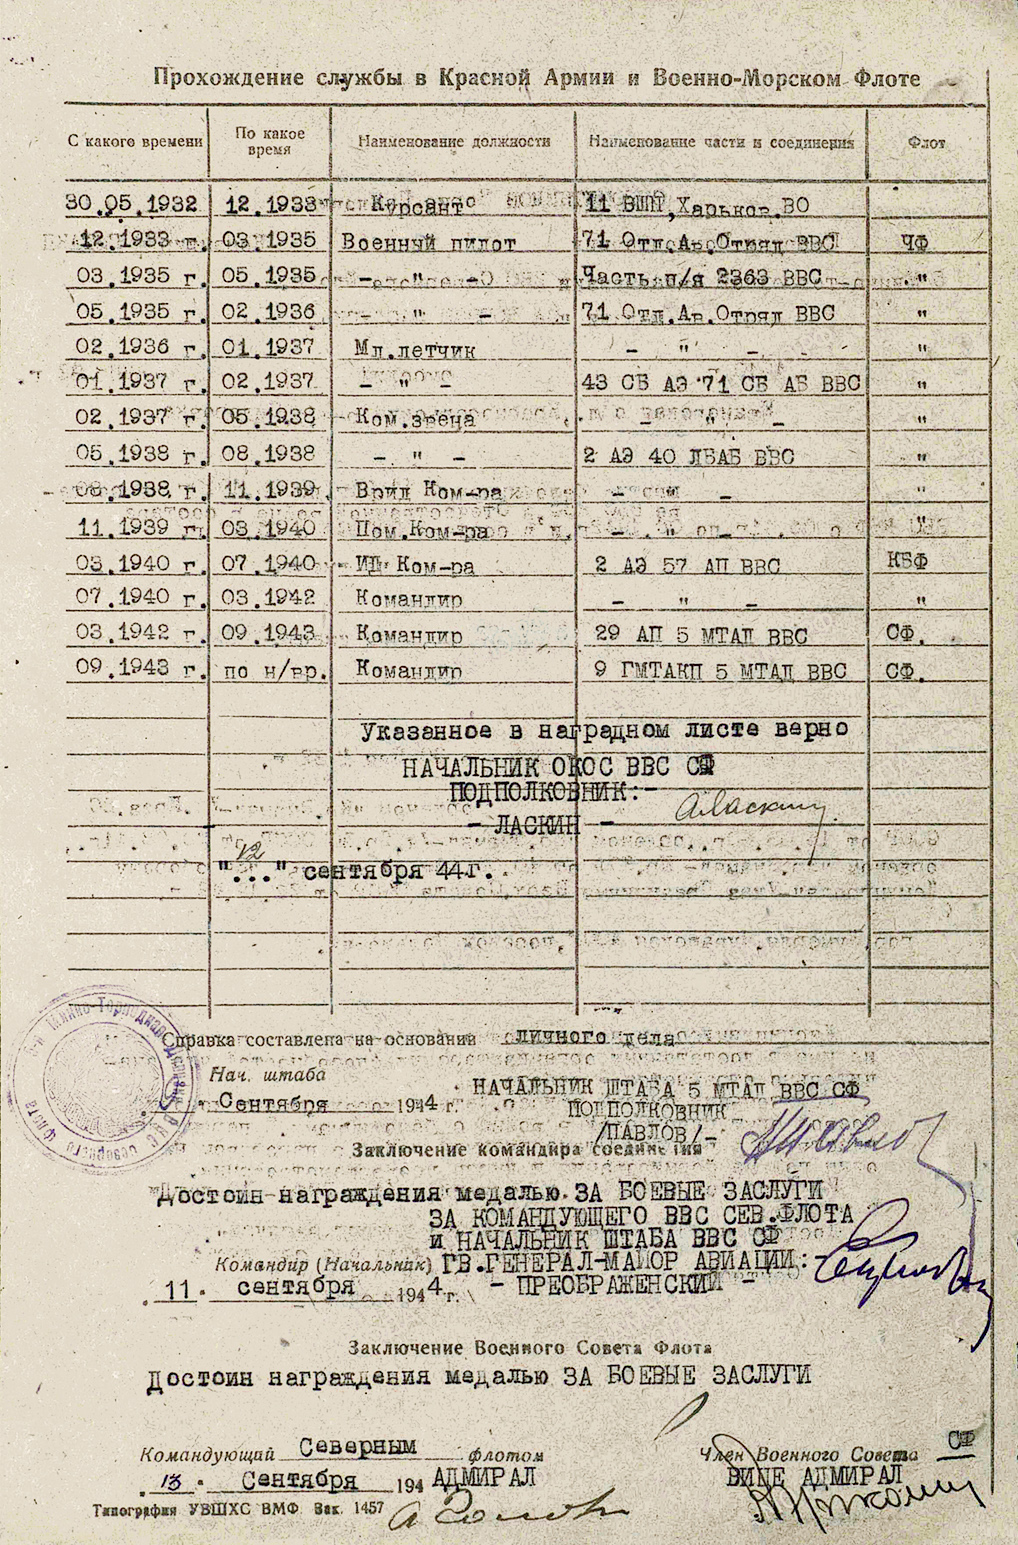 Прохождение службы в Красной Армии и Военно-Морском Флоте
С какого времени По какое время Наименование должности Наименование части и соединения Флот
30.05.1932 12.1933 Курсант 11 ВШП, Харьков. ВО
12.1933 г. 03 1935 Военный пилот 71 Отд.Ав.Отряд ВВС ЧФ
03.1935 г. 05.1935 - " - Часть п/я 2363 ВВС "
05.1935 г. 02.1936 - " - 71 Отд.Ав.Отряд ВВС "
02.1936 г. 01.1937 Мл.летчик - " - "
01.1937 г. 02.1937 - " - 43 СБ АЭ 71 СБ АБ ВВС "
02.1937 г. 05.1938 Ком.звена - " - "
05.1938 г. 08.1938 - " - 2 АЭ 40 ЛБАБ ВВС "
08.1938 г. 11.1939 Врид Ком-ра - " - "
11.1939 г. 03.1940 Пом.Ком-ра - " - "
03.1940 г. 07.1940 ИД Ком-ра 2 АЭ 57 АП ВВС КБФ
07.1940 г. 03.1942 Командир - " - "
03.1942 г. 09.1943 Командир 29 АП 5 МТАД ВВС СФ.
09.1943 г. по н/вр. Командир 9 ГМТАКП 5 МТАД ВВС СФ.
Указанное в наградном листе верно
НАЧАЛЬНИК ОКОС ВВС СФ
ПОДПОЛКОВНИК:-
- ЛАСКИН - АЛаскин
"12" сентября 44г.
Справка составлена на основании личного дела
Нач. штаба
Сентября 1944 г.
НАЧАЛЬНИК ШТАБА 5 МТАД ВВС СФ
ПОДПОЛКОВНИК
/ПАВЛОВ/-
Заключение командира соединения
Достоин награждения медалью ЗА БОЕВЫЕ ЗАСЛУГИ
ЗА КОМАНДУЮЩЕГО ВВС СЕВ.ФЛОТА
и НАЧАЛЬНИК ШТАБА ВВС СФ
Командир (Начальник) ГВ.ГЕНЕРАЛ-МАЙОР АВИАЦИИ:-
11. сентября 1944 г. - ПРЕОБРАЖЕНСКИЙ -
Заключение Военного Совета Флота
Достоин награждения медалью ЗА БОЕВЫЕ ЗАСЛУГИ
Командующий Северным флотом Член Военного Совета СФ
13 Сентября 194 АДМИРАЛ ВИЦЕ АДМИРАЛ
Типография УВШХС ВМФ Зак. 1457